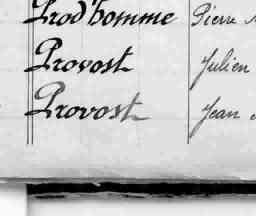 Prod'homme Pierre
Provost Julien
Provost Jean